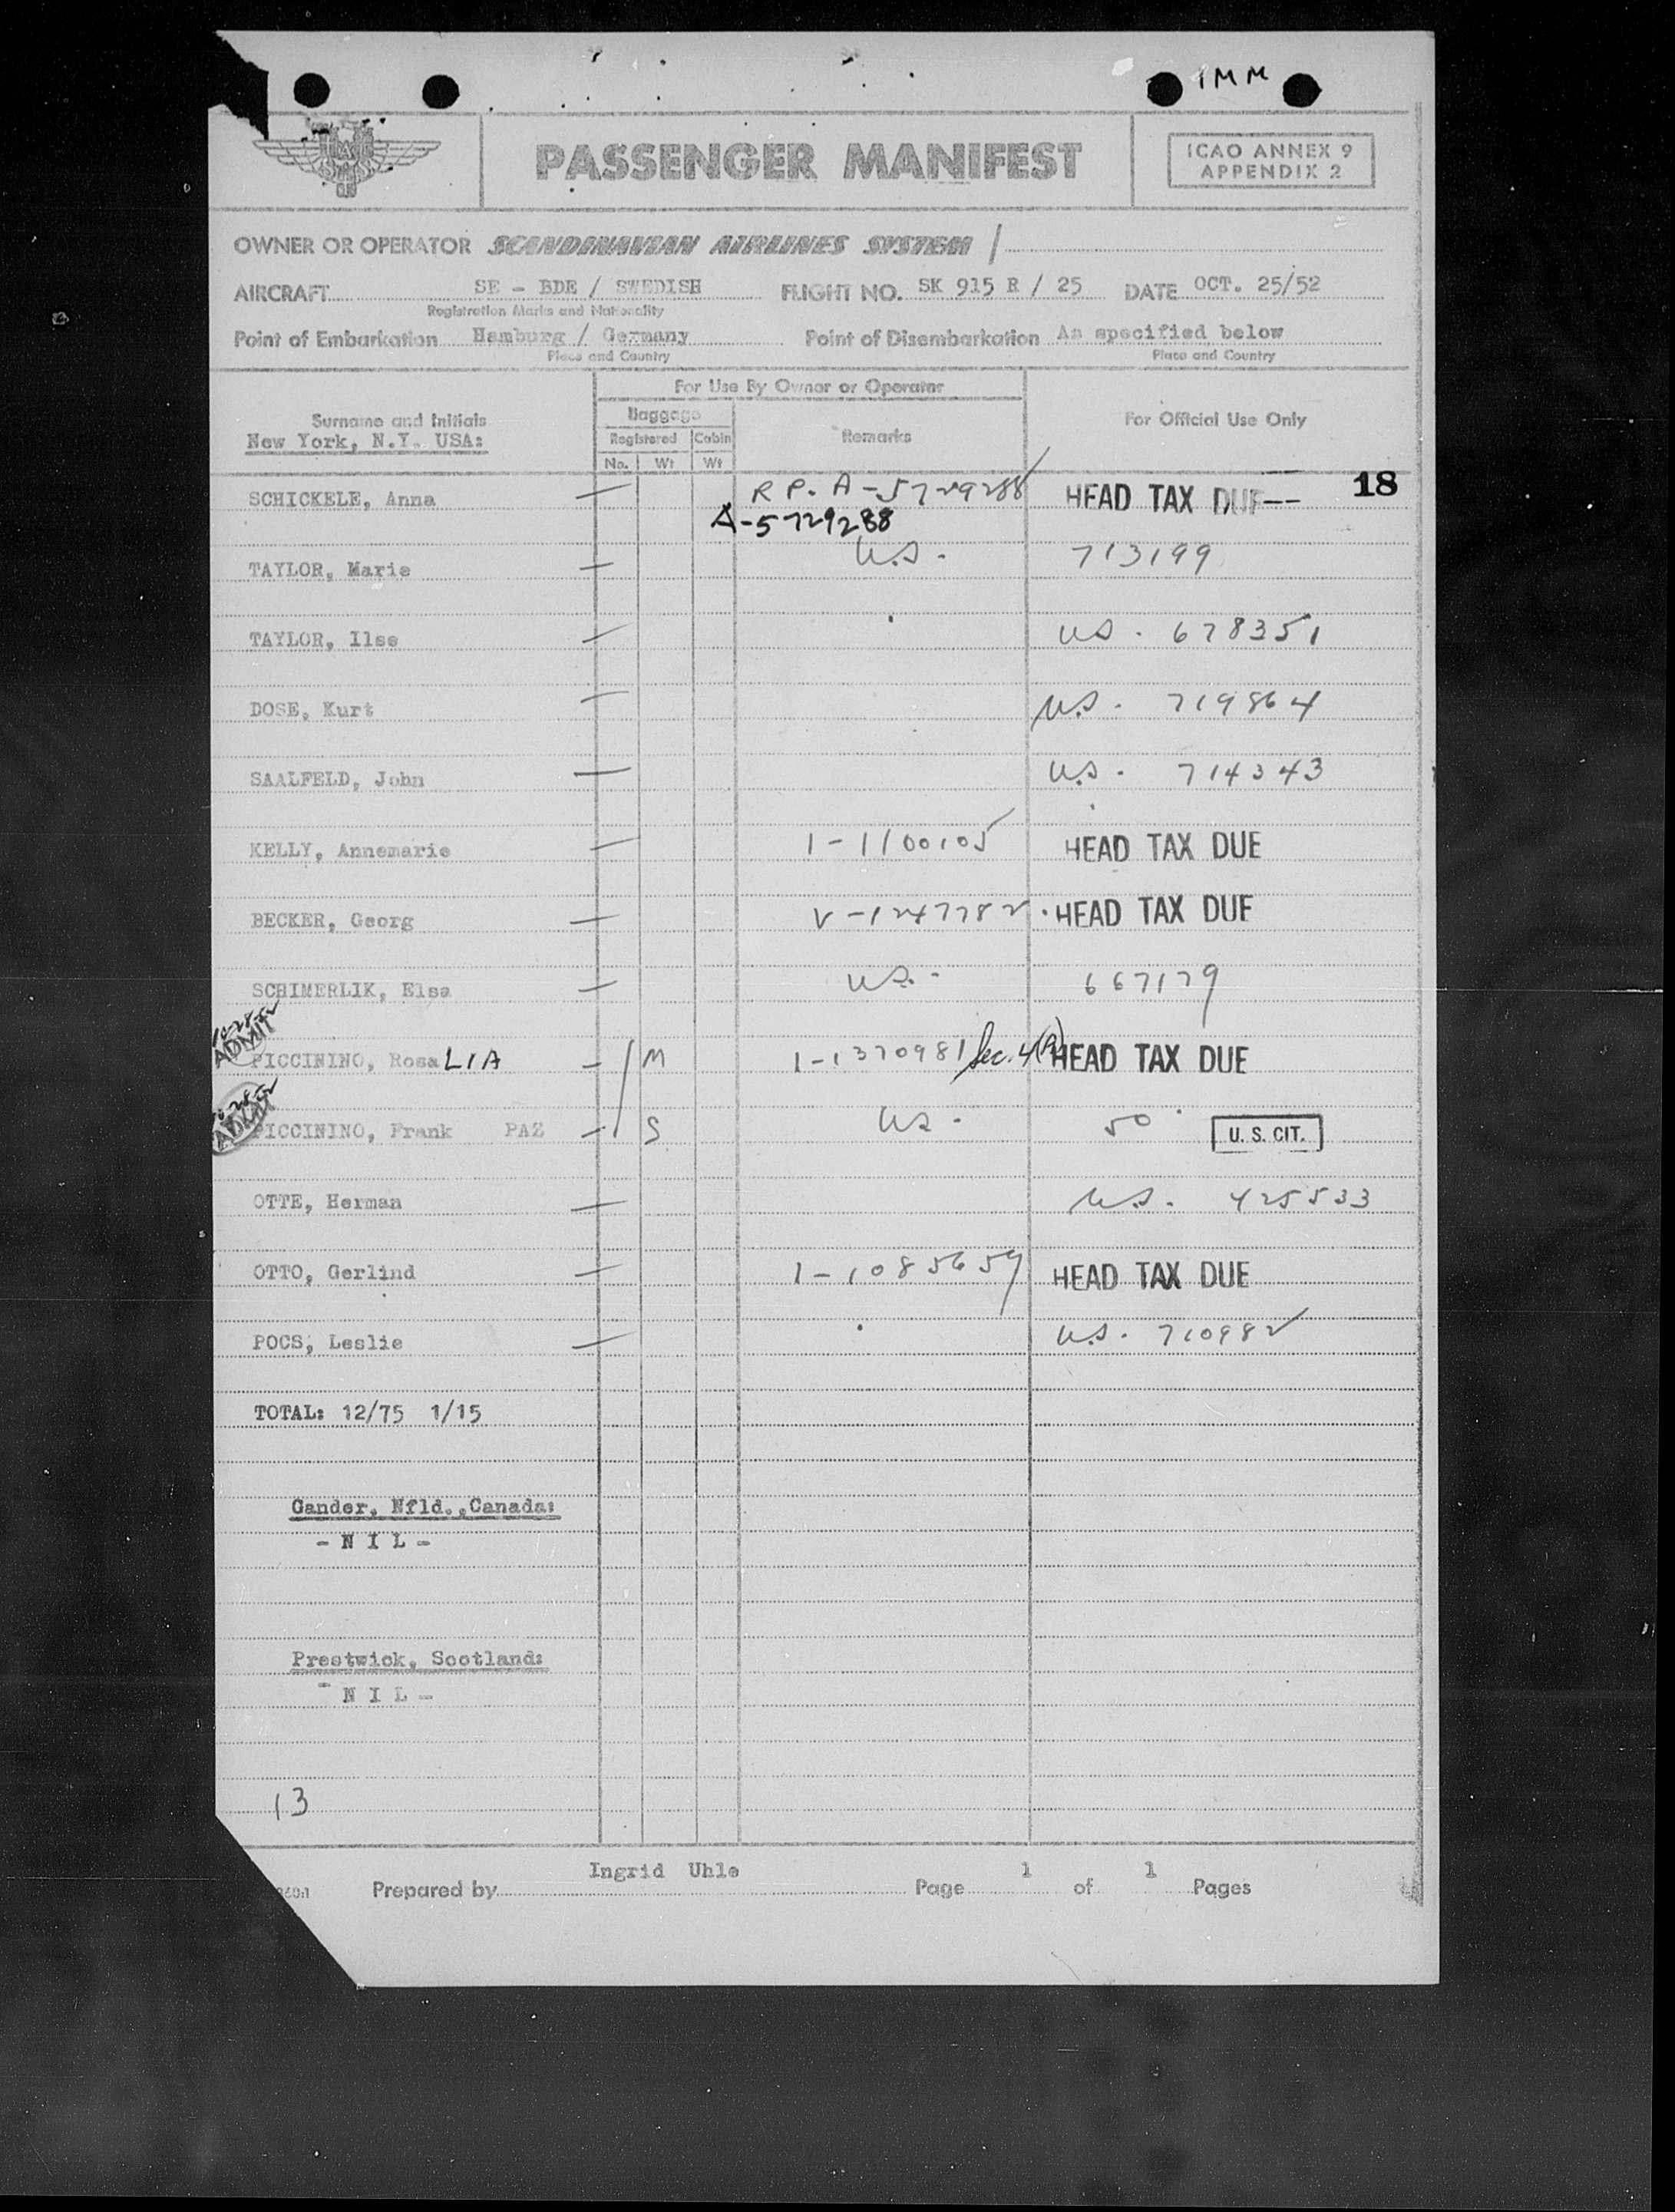 IMM
PASSENGER MANIFEST
ICAO ANNEX 9
APPENDIX 2
OWNER OR OPERATOR SCANDINAVIAN AIRLINES SYSTEM /
AIRCRAFT SE - BDE / SWEDISH FLIGHT NO. SK 915 R / 25 DATE OCT. 25/52
Registration Marks and Nationality
Point of Embarkation Hamburg / Germany Point of Disembarkation As specified below
Place and Country Place and Country
For Use By Owner or Operator
Surname and Initials Baggage Remarks For Official Use Only
New York, N.Y. USA: Registered Cabin
No. Wt Wt
SCHICKELE, Anna R P. A-5729288 HEAD TAX DUE-- 18
A-5729288
TAYLOR, Marie U.S. 713199
TAYLOR, Ilse US. 678351
DOSE, Kurt U.S. 719864
SAALFELD, John U.S. 714343
KELLY, Annemarie 1-1100105 HEAD TAX DUE
BECKER, Georg V-1247782 HEAD TAX DUE
SCHIMERLIK, Elsa US. 667179
10-28-52
ADMIT
PICCININO, RosaLIA M 1-1370981 Sec. 4(a) HEAD TAX DUE
10-28-52
ADMIT
PICCININO, Frank PAZ S US. 50 U. S. CIT.
OTTE, Herman U.S. 425533
OTTO, Gerlind 1-1085659 HEAD TAX DUE
POCS, Leslie U.S. 710982
TOTAL: 12/75 1/15
Gander, Nfld.,Canada:
- N I L -
Prestwick, Scotland:
- N I L -
13
Prepared by Ingrid Uhle Page 1 of 1 Pages